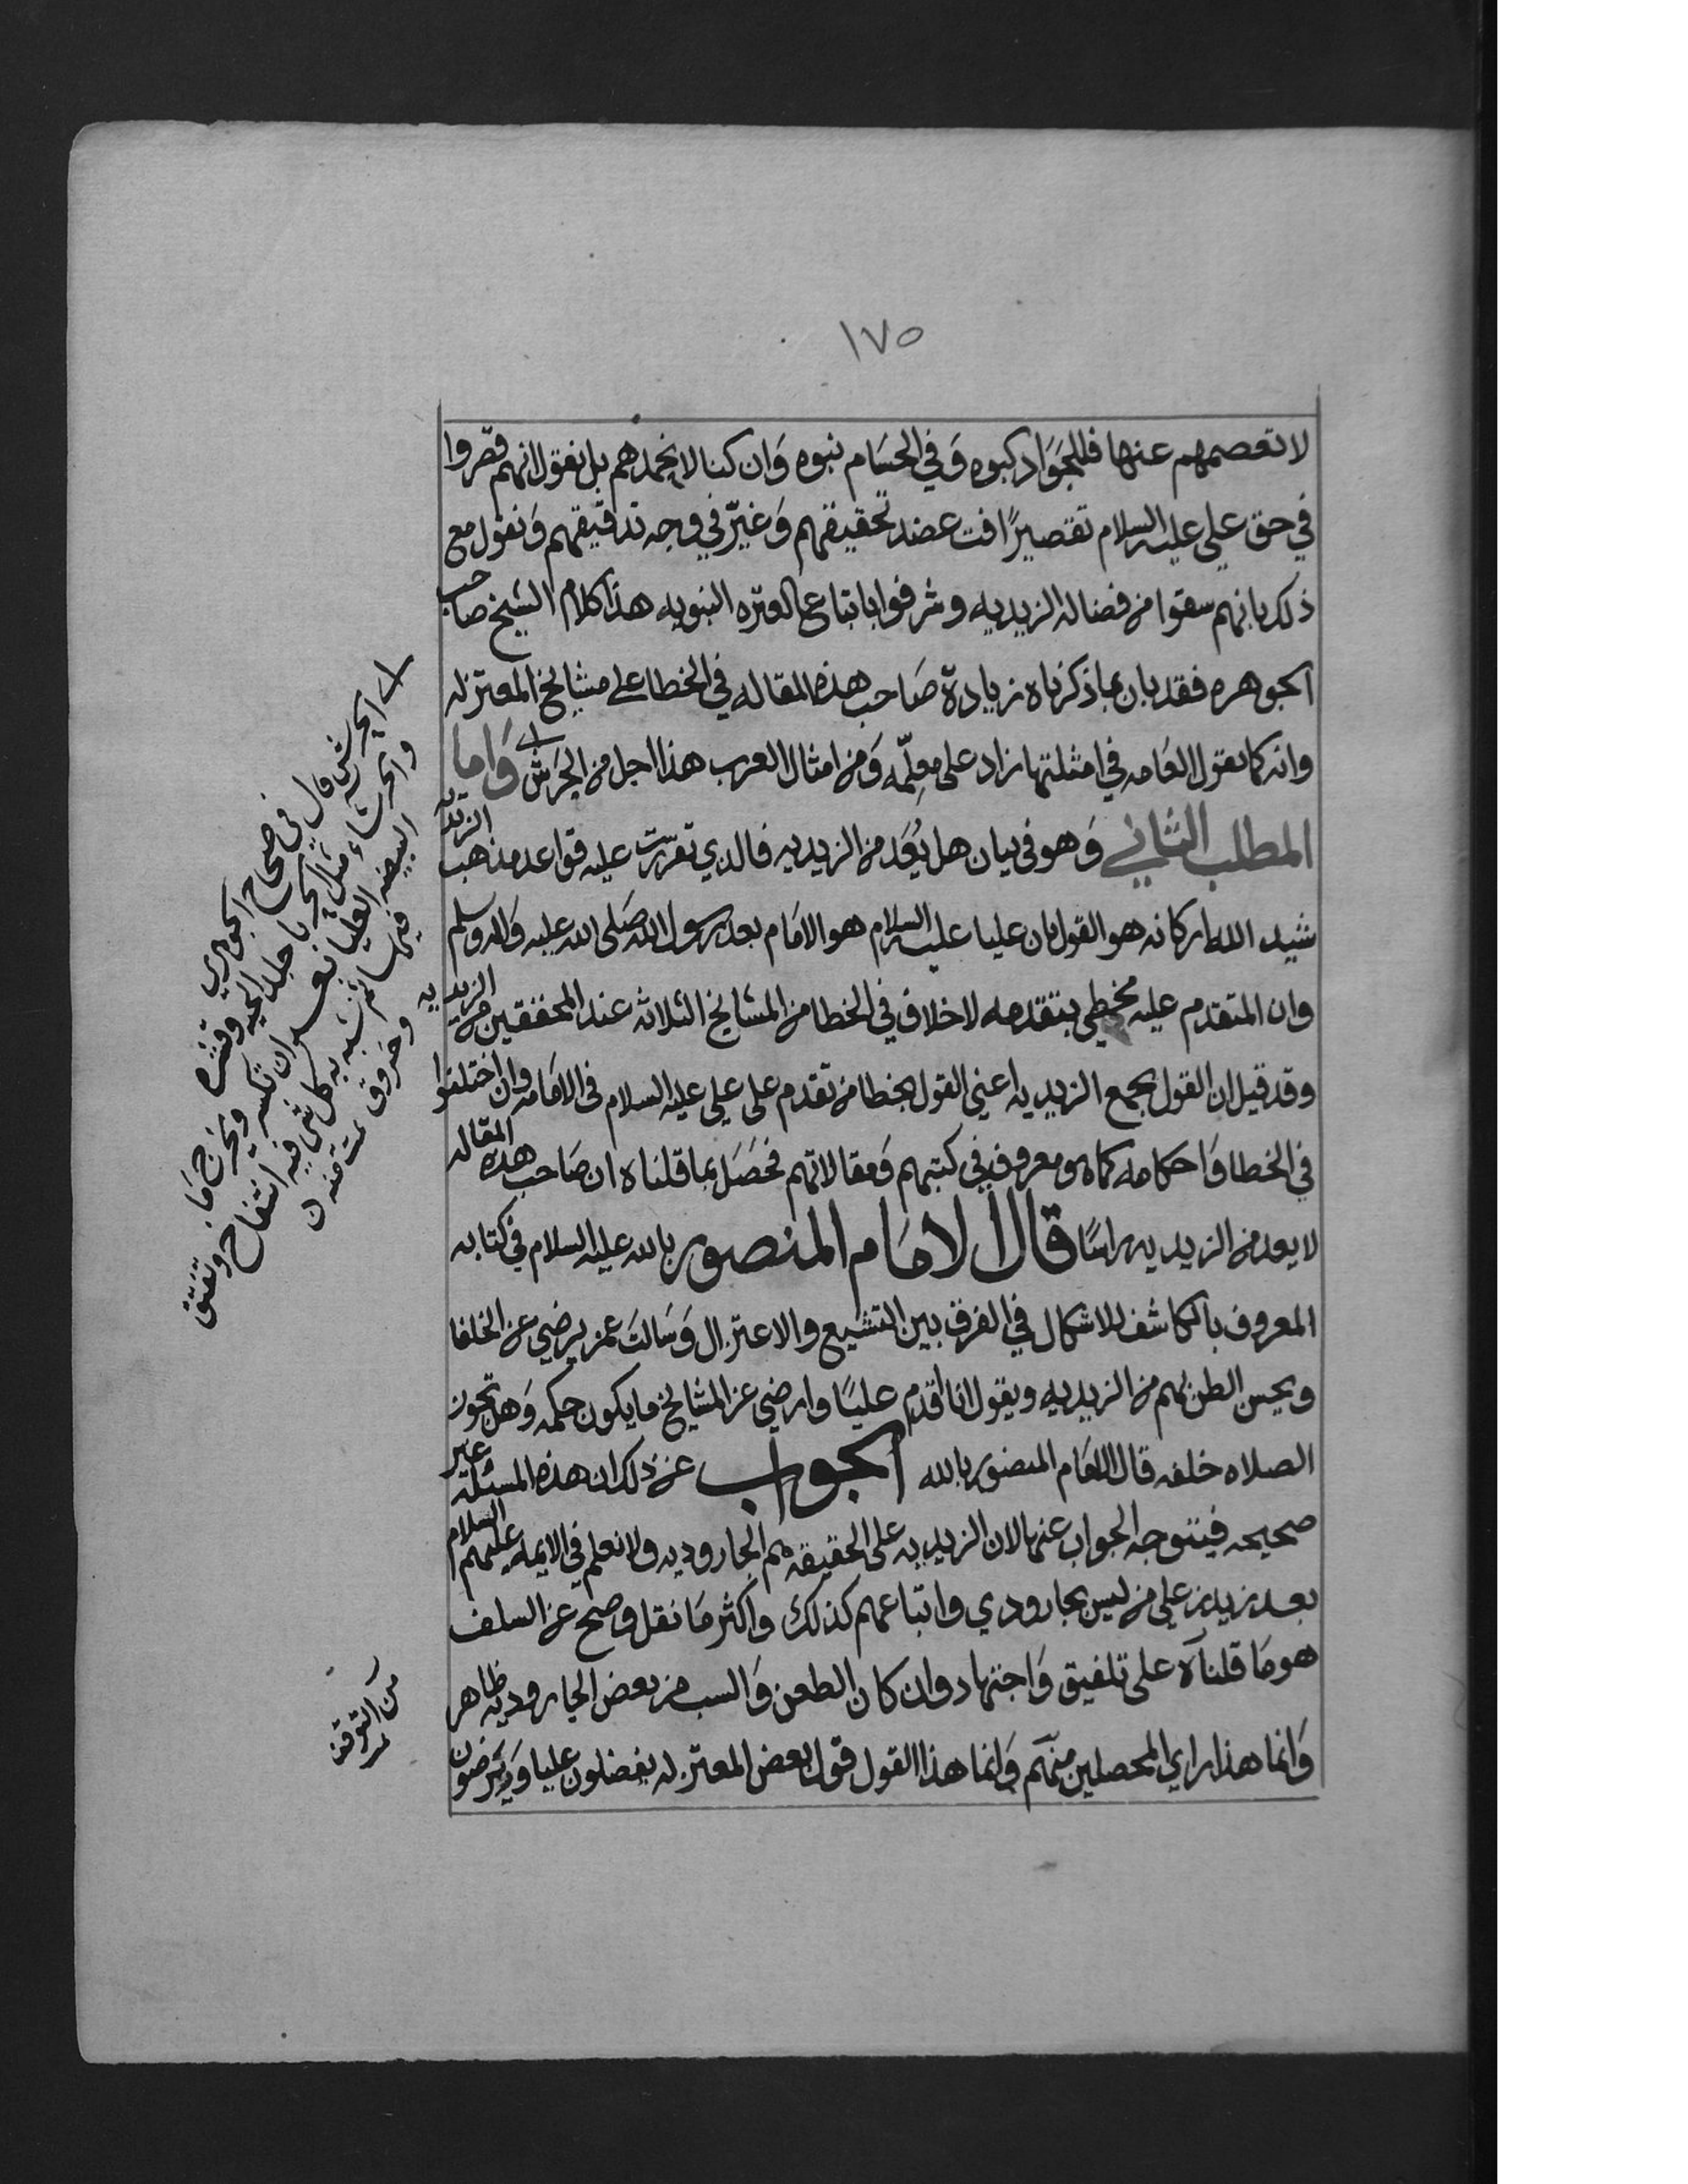 ١٧٥
لا تعصمهم عنها فللجَوَاد كبوه وَفي الحسَام نبوه وَان كنا لا نحمدهم بل نقول انهم قصروا
في حق علي عليه السلام تقصيرًا فت عضد تحقيقهم وَغبّر في وجه تدقيقهم وَنقول مع
ذلك بانهم سقوا من فضاله الزيديه وشرفوا باتباع العتره النبويه هذا كلام الشيخ صاحب
الجوهره فقد بان بما ذكرناه زيادة صَاحب هذه المقاله في الخطا على مشايخ المعتزله
وانه كما يقول العَامه في امثلتها زاد على معلِّمه وَمن امثال العرب هذا اجل من الحَرش وَاما
المطلب الثاني وَهو في بيان هل يُعَد من الزيديه فالدي تقررت عليه قواعد مذهب الزيديه
شيد الله اركانه هو القول بان عليا عليه السلام هو الامَام بعد رسول الله صَلى الله عليه وَاله وسلم
وان المتقدم عليه مخطي بتقدمه لا خلاف في الخطا من المشايخ الثلاثه عند المحققين من الزيديه
وقد قيل ان القول بجمع الزيديه اعني القول بخطا من تقدم على علي عليه السلام في الامَامه وان اختلفوا
في الخطا وَاحكامه كما هو معروف في كتبهم وَمقالاتهم فحَصَل بما قلناه ان صَاحب هذه المقاله
لا يعد من الزيديه راسًا قال الامَام المنصور بالله عليه السلام في كتابه
المعروف بالكاشف للاشكال في الفرق بين التشيع والاعتزال وَسَالت عمن يرضي عن الخلفا
ويحسن الظن بهم من الزيديه ويقول انا اقدم عليًا وارضي عن المشايخ ما يكون حكمه وَهل تجوز
الصلاه خلفه قال الامَام المنصور بالله الجواب عن ذلك ان هذه المسئله غير
صحيحه فيتوجه الجواب عنها لان الزيديه على الحقيقه هم الجاروديه ولا نعلم في الايمه عليهم السلام
بعد زيد بن علي من ليس بجارودي واتباعهم كذلك واكثر مَا نقل وصح عن السلف
هو مَا قلناه على تلفيق وَاجتهاد وان كان الطعن وَالسب من بعض الجاروديه ظاهر
وَانما هذا راي المحصلين منهم وَانما هذا القول قول بعض المعتزله يفضلون عليا وَيترضون
الحرش قال في صحاح الجوهري
والحرشاء مثل الحرباء جلد الحيه وقشره
البيضه العليا بعد ان تكسر ويخرج مَا
فيها ثم شبه به كل شي فيه انتفاخ وتفتق
وخروق
من